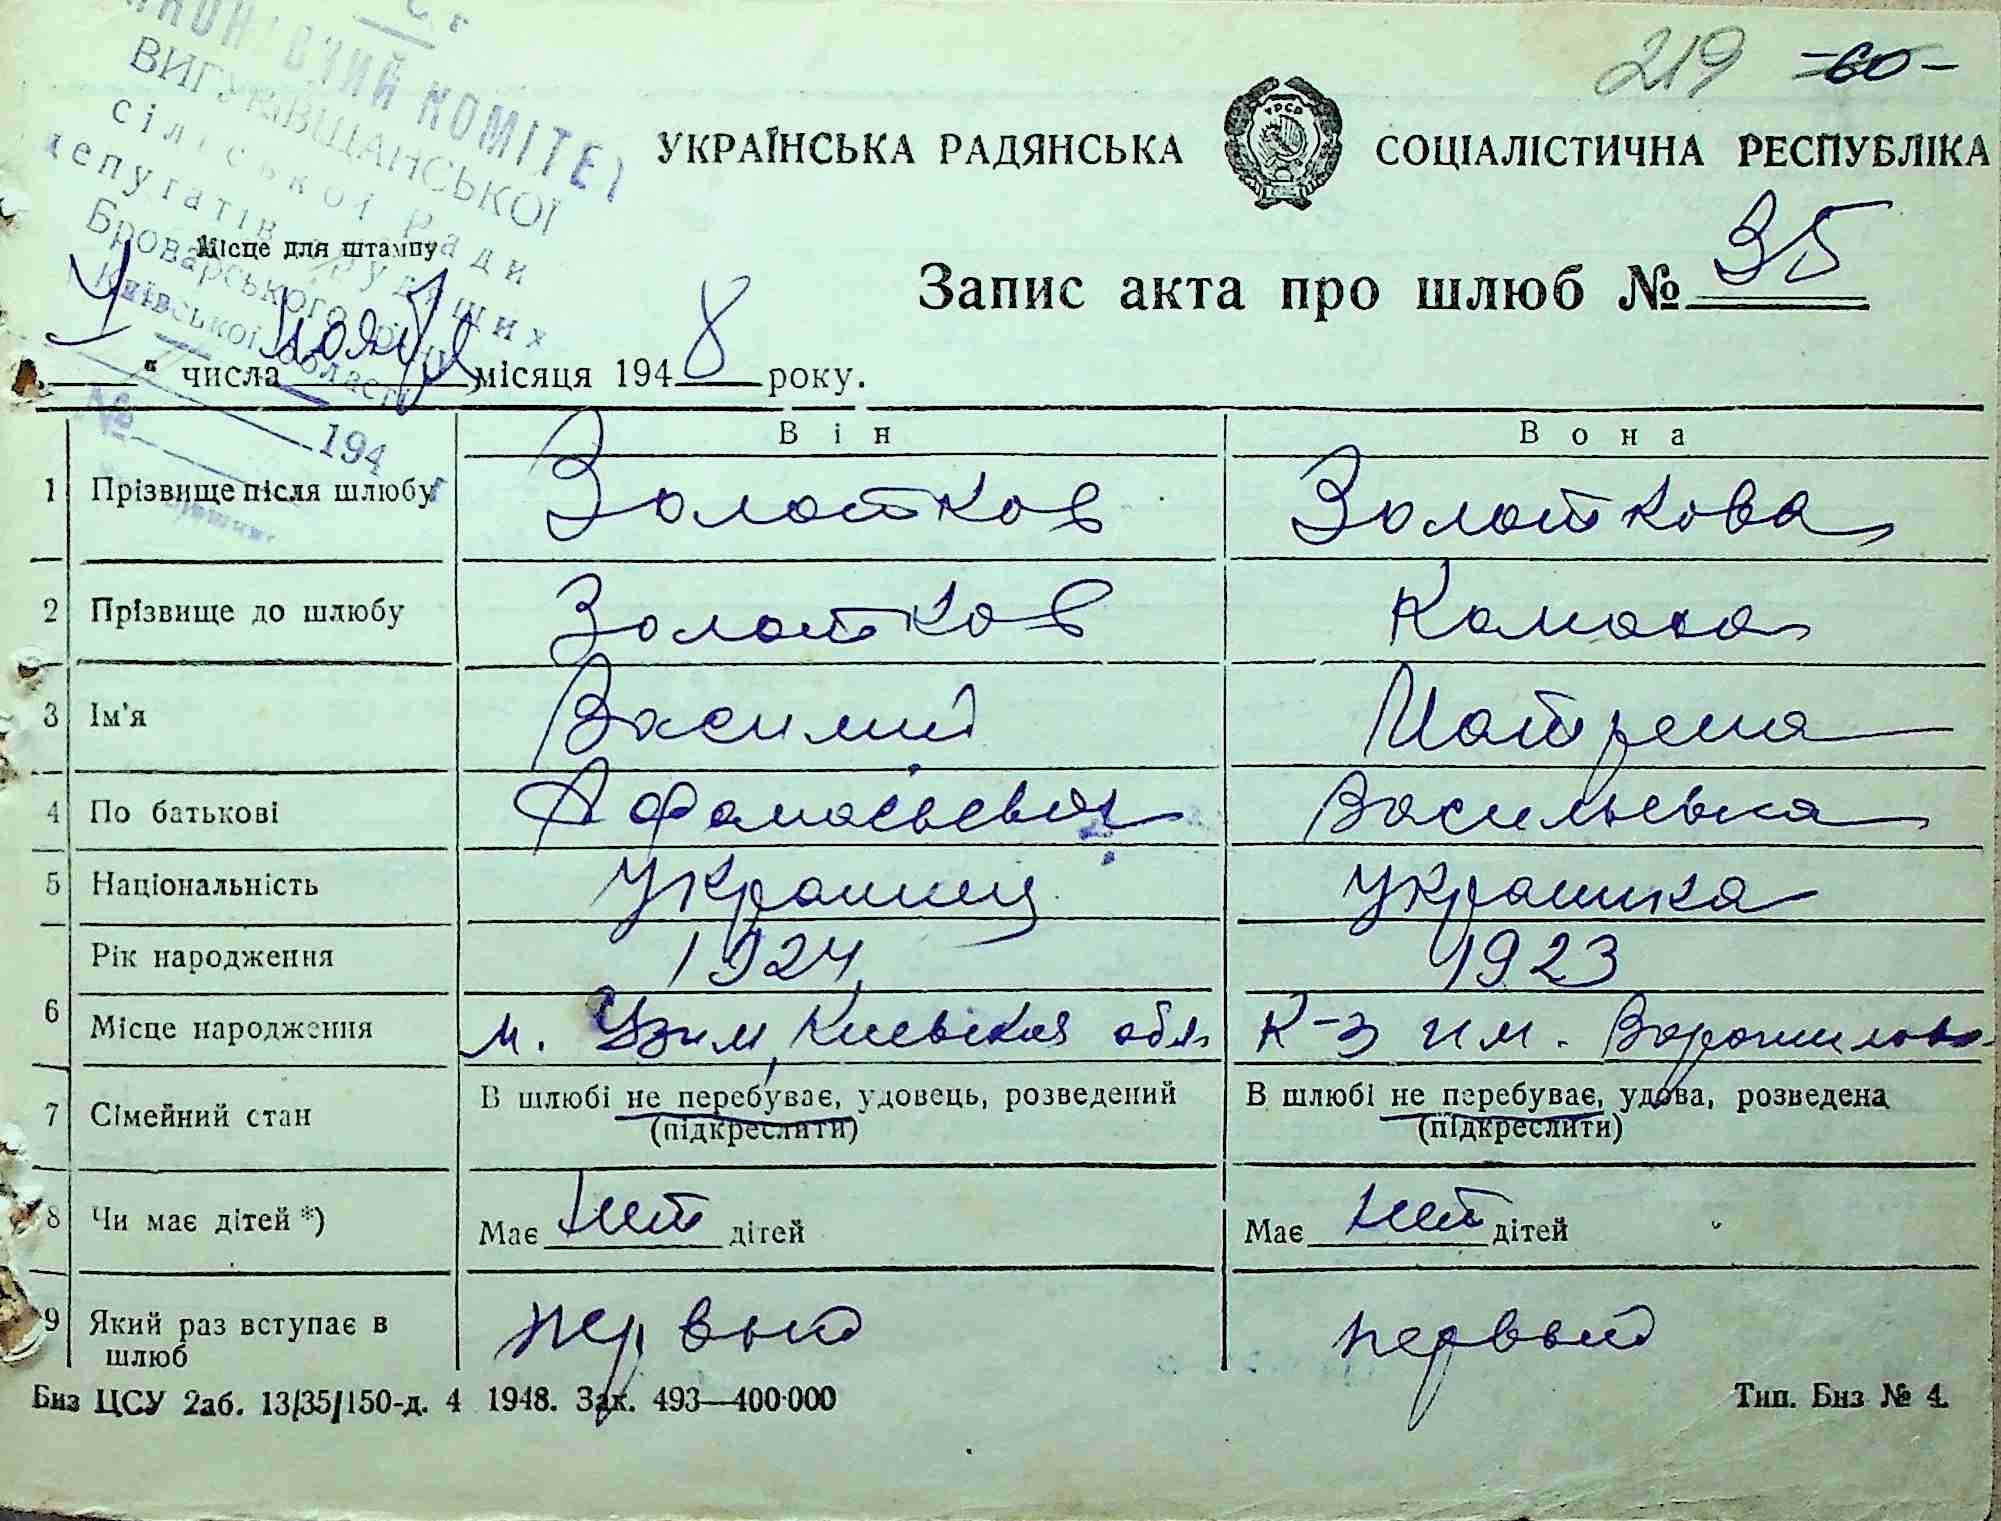 219 -60-
ВИКОНАВЧИЙ КОМІТЕТ
сільської Ради
депутатів трудящих
Броварського району
Київської області
№ 194 г
УКРАЇНСЬКА РАДЯНСЬКА СОЦІАЛІСТИЧНА РЕСПУБЛІКА
УРСР
Місце для штампу
Запис акта про шлюб № 35
числа ноября місяця 1948 року.
Він Вона
1 Прізвище після шлюбу Золотков Золоткова
2 Прізвище до шлюбу Золотков
3 Ім'я Василий Матрена
4 По батькові Афанасьевич Васильевна
5 Національність Украинец Украинка
6 Рік народження 1924 1923
Місце народження м. Узин, Киевская обл. К-з им. Ворошилова
7 Сімейний стан В шлюбі не перебуває, удовець, розведений В шлюбі не перебуває, удова, розведена
(підкреслити) (підкреслити)
8 Чи має дітей *) Має нет дітей Має нет дітей
9 Який раз вступає в шлюб первый первый
Биз ЦСУ 2аб. 13/35/150-д. 4 1948. Зак. 493—400·000 Тип. Биз № 4.